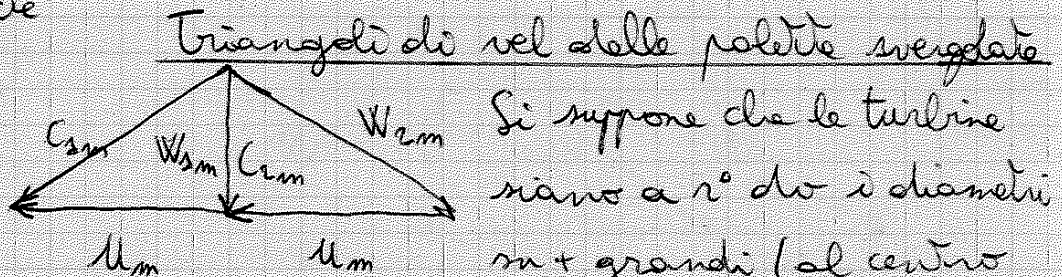 Triangoli di vel delle palette svergolate
C1m W1m C2m W2m Si suppone che le turbine
siano a r° do i diametri
um um + grandi (al centro